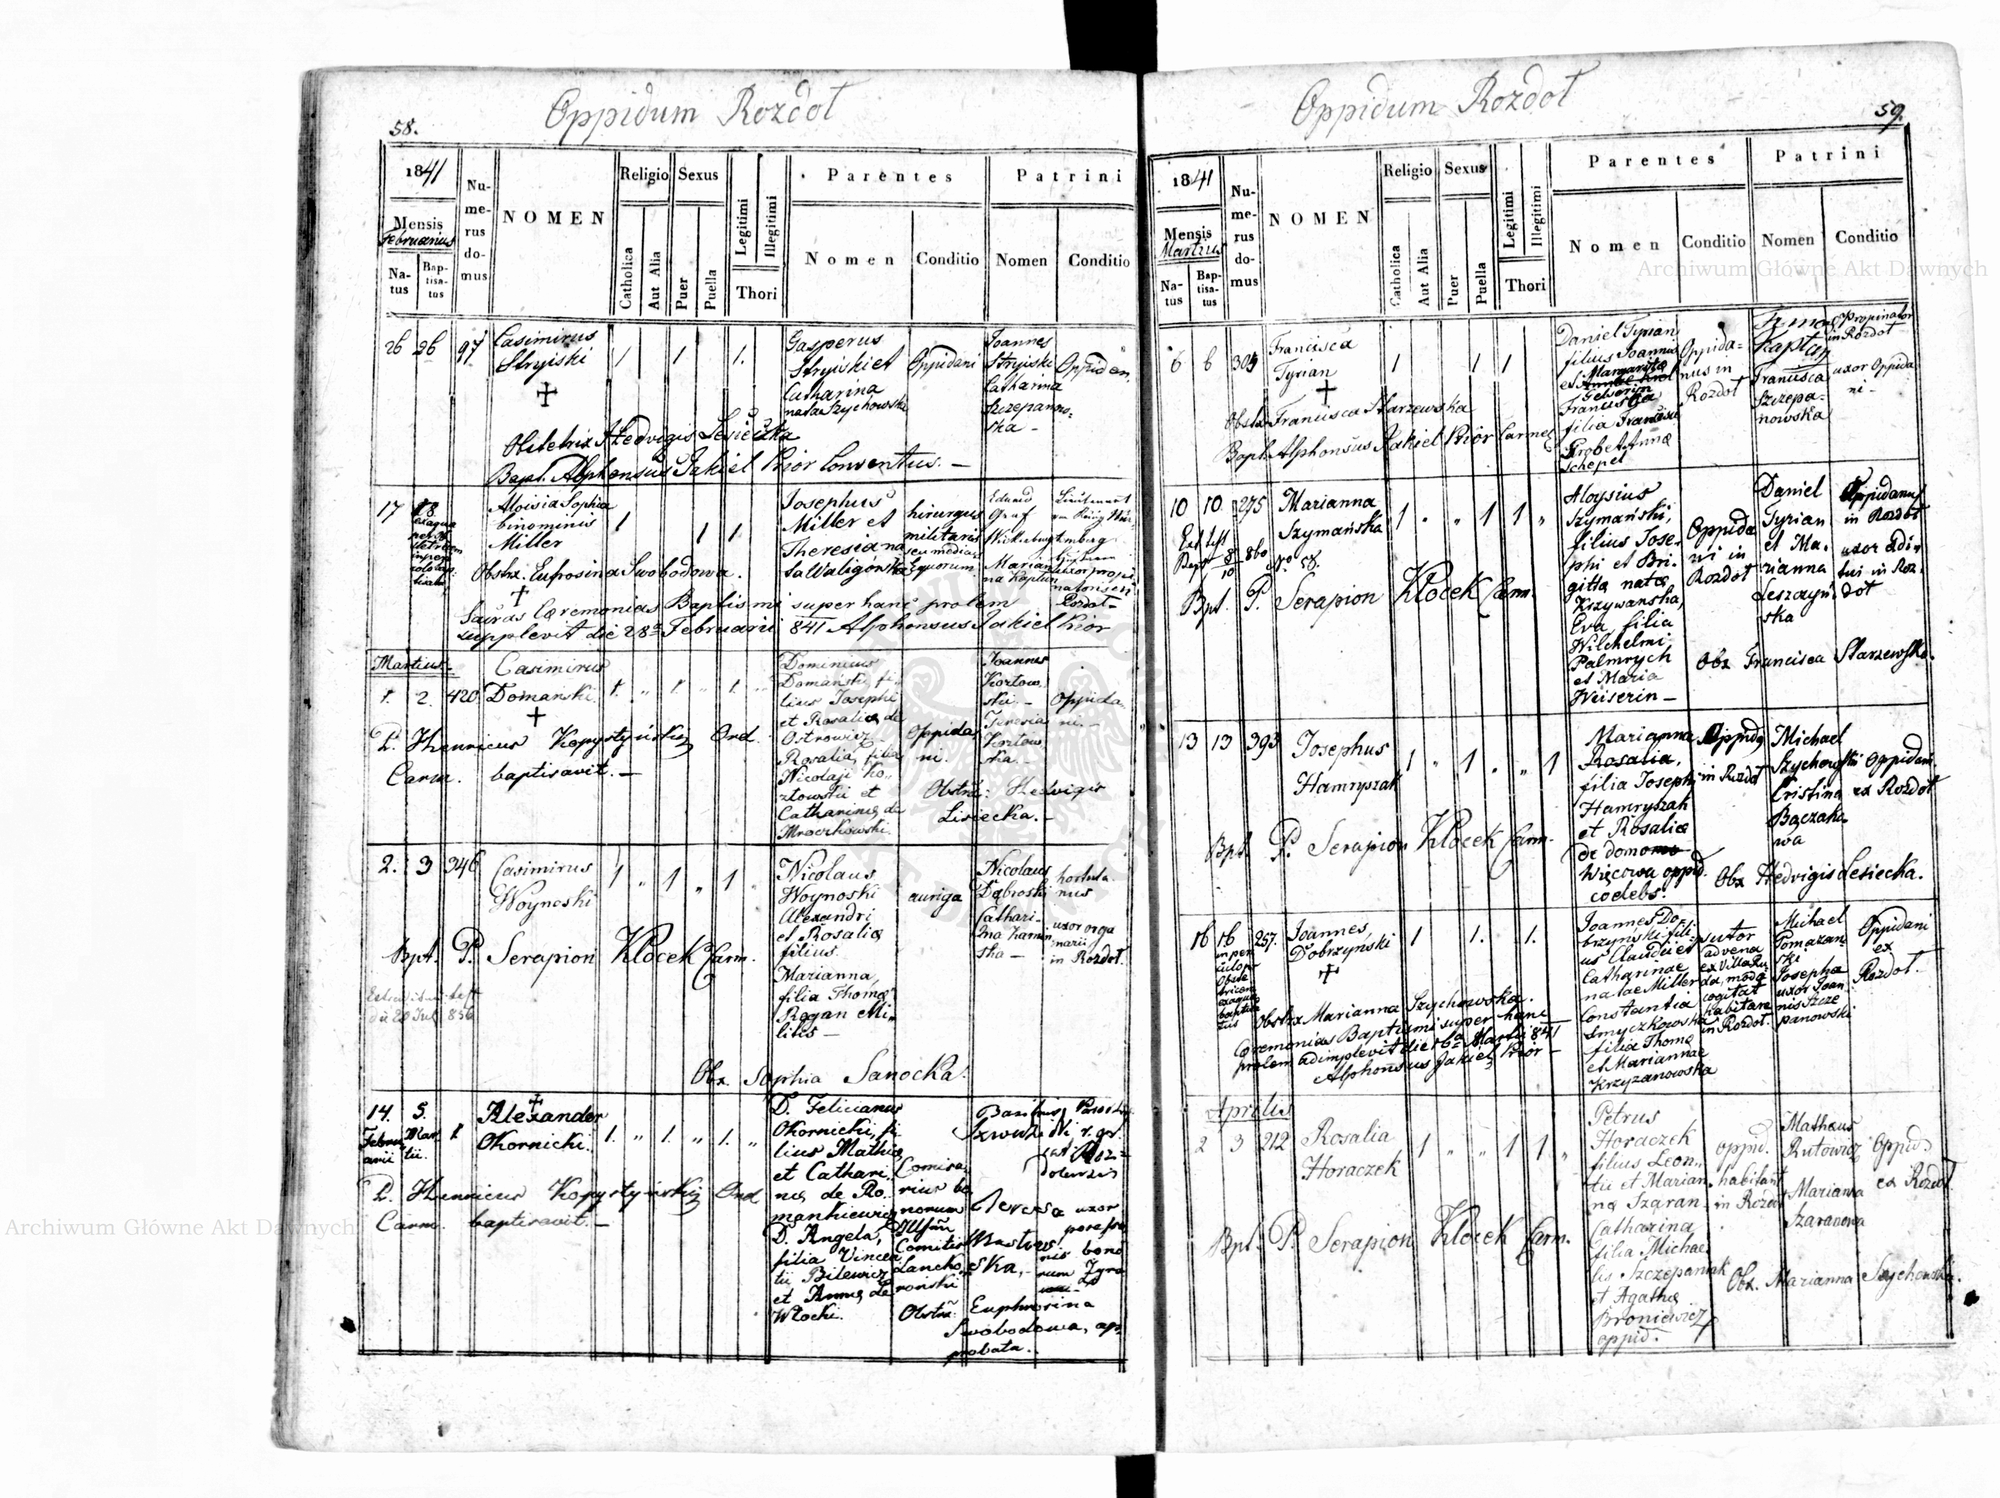 Oppidum Rozdoł
58.
1841
Mensis
Februarius
Na-
tus
Bap-
tisa-
tus
Nu-
me-
rus
do-
mus
NOMEN
Religio
Catholica
Aut Alia
Sexus
Puer
Puella
Legitimi
Illegitimi
Thori
Parentes
Nomen
Conditio
Patrini
Nomen
Conditio
26 26 97
Casimirus
Stryiski
1 1 1.
Gasperus
Stryiski et
Catharina
nata Szychowska
Oppidani
Joannes
Stryiski
Catharina
Szczepanow-
ska -
Oppidan.
Obstetrix Hedvigis Lesiecka
Bapt. Alphonsus Jakiel Prior Conventus. -
17 18
Aloisia Sophia
binominis
Miller
1 1 1.
Josephus
Miller et
Theresia na
ta Waligorska
hirurgus
militaris
seu medicus
Equorum
Eduard
Graf
Marian
na Kaptun
Obstx. Eufrosina Swobodowa.
Sacras Cæremonias Baptismi super hanc prolem
supplevit die 28a Februarii 841 Alphonsus Jakiel Prior
Martius
1. 2. 420
Casimirus
Domański
1. " 1. " 1. "
Dominicus
Domański, fi-
lius Josephi
et Rosaliæ de
Ostrowicz
Rosalia, filia
Nicolaji Ko-
złowskii et
Catharinæ de
Mroczkowski
Oppida
ni.
Joannes
Kozłow-
ski -
Teresia
Kozłow-
ska. -
Oppida-
ni. -
P. Henricus Kopystyński Ord.
Carm. baptisavit. -
Obstx: Hedvigis
Lisiecka. -
2. 3 346
Casimirus
Woynoski
1 " 1 " 1 "
Nicolaus
Woynoski
Alexandri
et Rosaliæ
filius.
Marianna,
filia Thomæ
Rogan Mi-
litis -
auriga
Nicolaus
Dąbroski
Cathari-
na Kamin
ska -
hortula
nus
uxor orga
narii
in Rozdoł.
Bpt. P. Serapion Kłocek Carm.
Obx. Sophia Sanocka.
14. 5. 1
Februarii
Martii.
Alexander
Okornicki.
1. " 1. " 1. "
D. Felicianus
Okornicki, fi
lius Mathiæ
et Cathari-
næ de Ro-
mankiewicz
D. Angela,
filia Vincen
tii Bilewicz
et Annæ de
Włocki.
Comisa-
rius bo
norum
Illstri
Comitis
Lancko
roński
Basilius
Teresa
ska, -
uxor
nis bono
rum Zyra
P. Henricus Kopystyński Ord.
Carm. baptisavit. -
Obstx: Euphrosina
Swobodowa, ap-
probata. -
Oppidum Rozdoł
59.
1841
Mensis
Martius
Na-
tus
Bap-
tisa-
tus
Nu-
me-
rus
do-
mus
NOMEN
Religio
Catholica
Aut Alia
Sexus
Puer
Puella
Legitimi
Illegitimi
Thori
Parentes
Nomen
Conditio
Patrini
Nomen
Conditio
6 6 305
Francisca
Tyrian
1 1 1
Daniel Tyrian
filius Joannis
et Margaritæ
Francisca
filia Francisci
Grobet Anna
Schepel
Oppida-
nus in
Rozdoł
Kaptun
Francisca
Szczepa-
nowska
Propinator
in Rozdoł
uxor Oppida
ni -
Obstx Francisca Starzewska
Bapt. Alphonsus Jakiel Prior Carmel.
10 10 275
Marianna
Szymańska
1 " " 1 1 "
Aloysius
Szymański,
filius Jose-
phi et Bri-
gitta nata
Krzywanska,
Eva, filia
Wilchelmi
Palmrych
et Maria
Weiserin -
Oppida
ni in
Rozdoł
Daniel
Tyrian
et Ma-
rianna
Leszczyń
ska
Oppidanus
in Rozdoł
uxor Ædi-
tui in Roz-
doł
Bpt. P. Serapion Kłocek Carm.
Obx Francisca Starzewska.
13 13 393
Josephus
Hamryszak
1 " 1 " " 1
Marianna
Rosalia,
filia Josephi
Hamryszak
et Rosaliæ
de domo
Więcowa oppid.
cœlebs.
Oppida
in Rozdoł
Michael
Szychowski
Cristina
Bączako
wa
Oppidani
ex Rozdoł
Bpt. P. Serapion Kłocek Carm.
Obx Hedvigis Lesiecka.
16 16 257.
Joannes
Dobrzyński
1 1. 1.
Joannes Do-
brzyński fili-
us Claudii et
Catharinae
natae Miller
Constantia
Smyczkowska
filia Thomæ
et Mariannae
Krzyzanowska
sutor
advena
ex Villa Ru
da, modo
cogitat
habitare
in Rozdoł.
Michael
Pomazan
ski
Josepha
uxor Joan
nis Szcze
panowski
Oppidani
ex
Rozdoł.
Obstx Marianna Szychowska.
Cæremonias Baptismi super hanc
prolem adimplevit die 16a Martii 841
Alphonsus Jakiel Prior -
Aprilis
2 3 212
Rosalia
Horaczek
1 " " 1 1 "
Petrus
Horaczek
filius Leon-
tii et Marian
na Szaran-
Catharina
filia Michae
lis Szczepaniak
et Agatha
Broniewicz
oppid.
oppid.
habitant
in Rozdoł
Matheus
Rutowicz
Marianna
Szaranowa
Oppid.
ex Rozdoł.
Bpt. P. Serapion Kłocek Carm.
Obx. Marianna Szychowska.
Archiwum Główne Akt Dawnych
Archiwum Główne Akt Dawnych